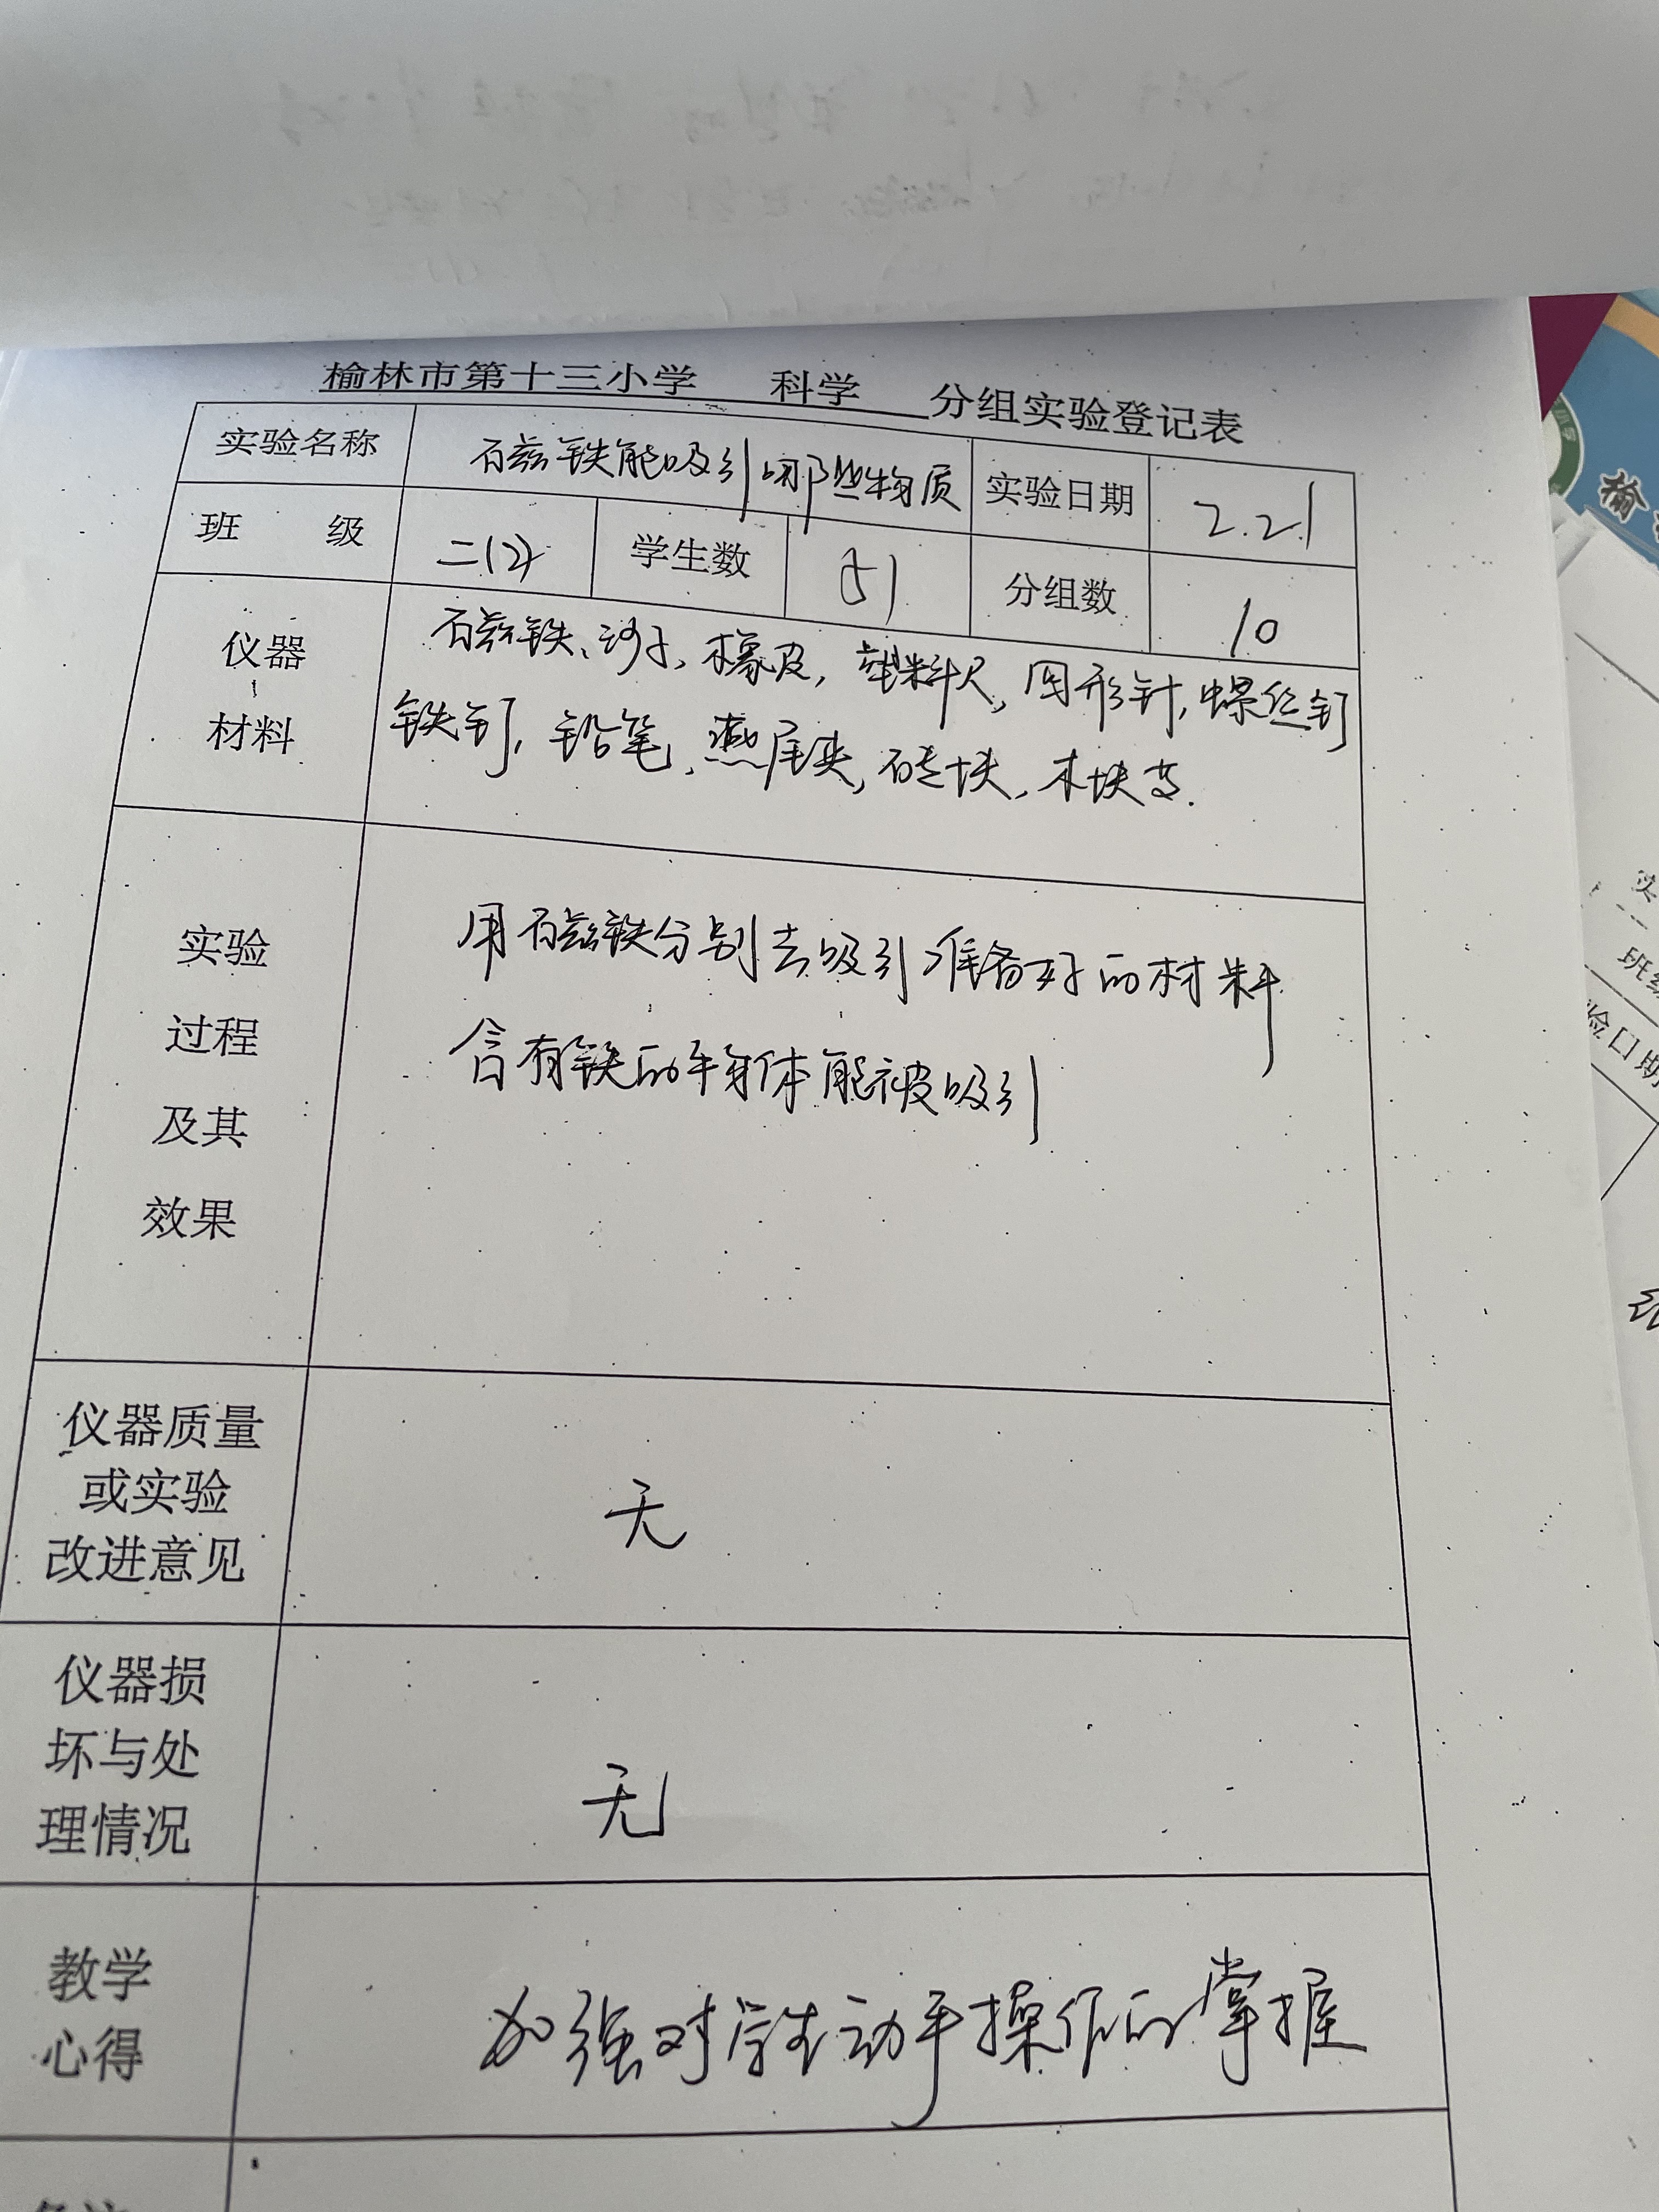 榆林市第十三小学 科学 分组实验登记表
实验名称 磁铁能吸引哪些物质 实验日期 2.21
班 级 二(2) 学生数 51 分组数 10
仪器 材料
磁铁、沙子, 橡皮, 塑料尺, 回形针, 螺丝钉
铁钉, 铅笔, 燕尾夹, 砖块, 木块等.
实验
过程
及其
效果
用磁铁分别去吸引准备好的材料
含有铁的 体能被吸引
仪器质量
或实验
改进意见
无
仪器损
坏与处
理情况
无
教学
心得
加强对学生动手操作的掌握
榆
班级
验日期